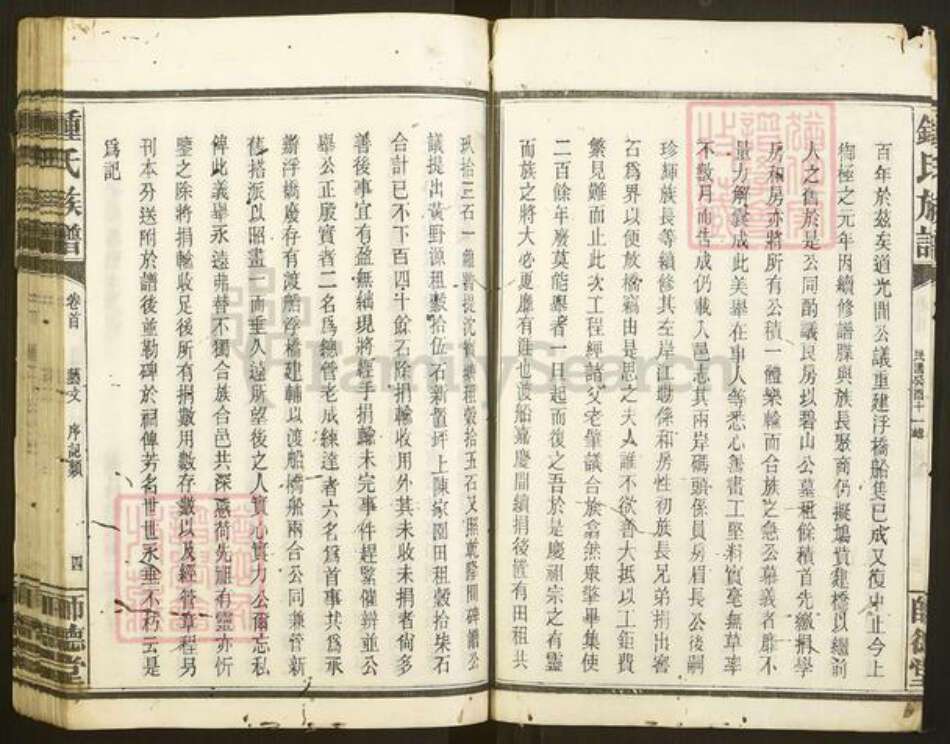 百年於茲矣道光間公議重建浮橋船隻已成又復中止今上
御極之元年因續修譜牒與族長聚商仍擬鳩貲建橋以繼前
人之舊於是公同酌議良房以碧山公墓租餘積首先繳捐學
房和房亦將所有公積一體樂輸而合族之急公慕義者靡不
量力解囊成此美舉在事人等悉心善畫工堅料實毫無草率
不數月而告成仍載入邑志其兩岸碼頭係員房眉長公後嗣
珍輝族長等續修其左岸江塝係和房性初族長兄弟捐出窖
石為界以便放橋竊由是思之夫人誰不欲善大抵以工鉅費
繁見難而止此次工程經諸父老肇議合族翕然眾擎畢集使
二百餘年廢莫能舉者一旦起而復之吾於是慶祖宗之有靈
而族之將大也更廳有註也渡船嘉慶間續捐後置有田租共
玖拾三石一
議提出黃野源租穀拾伍石新置坪上陳家園田租穀拾柒石
合計已不下百四十餘石除捐輸收用外其未收未捐者尚多
善後事宜有盈無絀現將經手捐輸未完事件趕緊催辦並公
舉公正殷實者二名為總管老成練達者六名為首事共為承
辦浮橋廢存有渡船浮橋建輔以渡船橋船兩台公同兼管新
舊搭派以昭畫一而垂久遠所望後之人實心實力公爾忘私
俾此義舉永遠弗替不獨合族合邑共深感荷先祖有靈亦忻
鑒之除將捐輸收足後所有捐數用數存數以及經管章程另
刊本分送附於譜後並勒碑於祠俾芳名世世永垂不朽云是
為記
鍾氏族譜
卷首
藝文
序記類
四
師德堂
鍾氏族譜
師德堂
FamilySearch